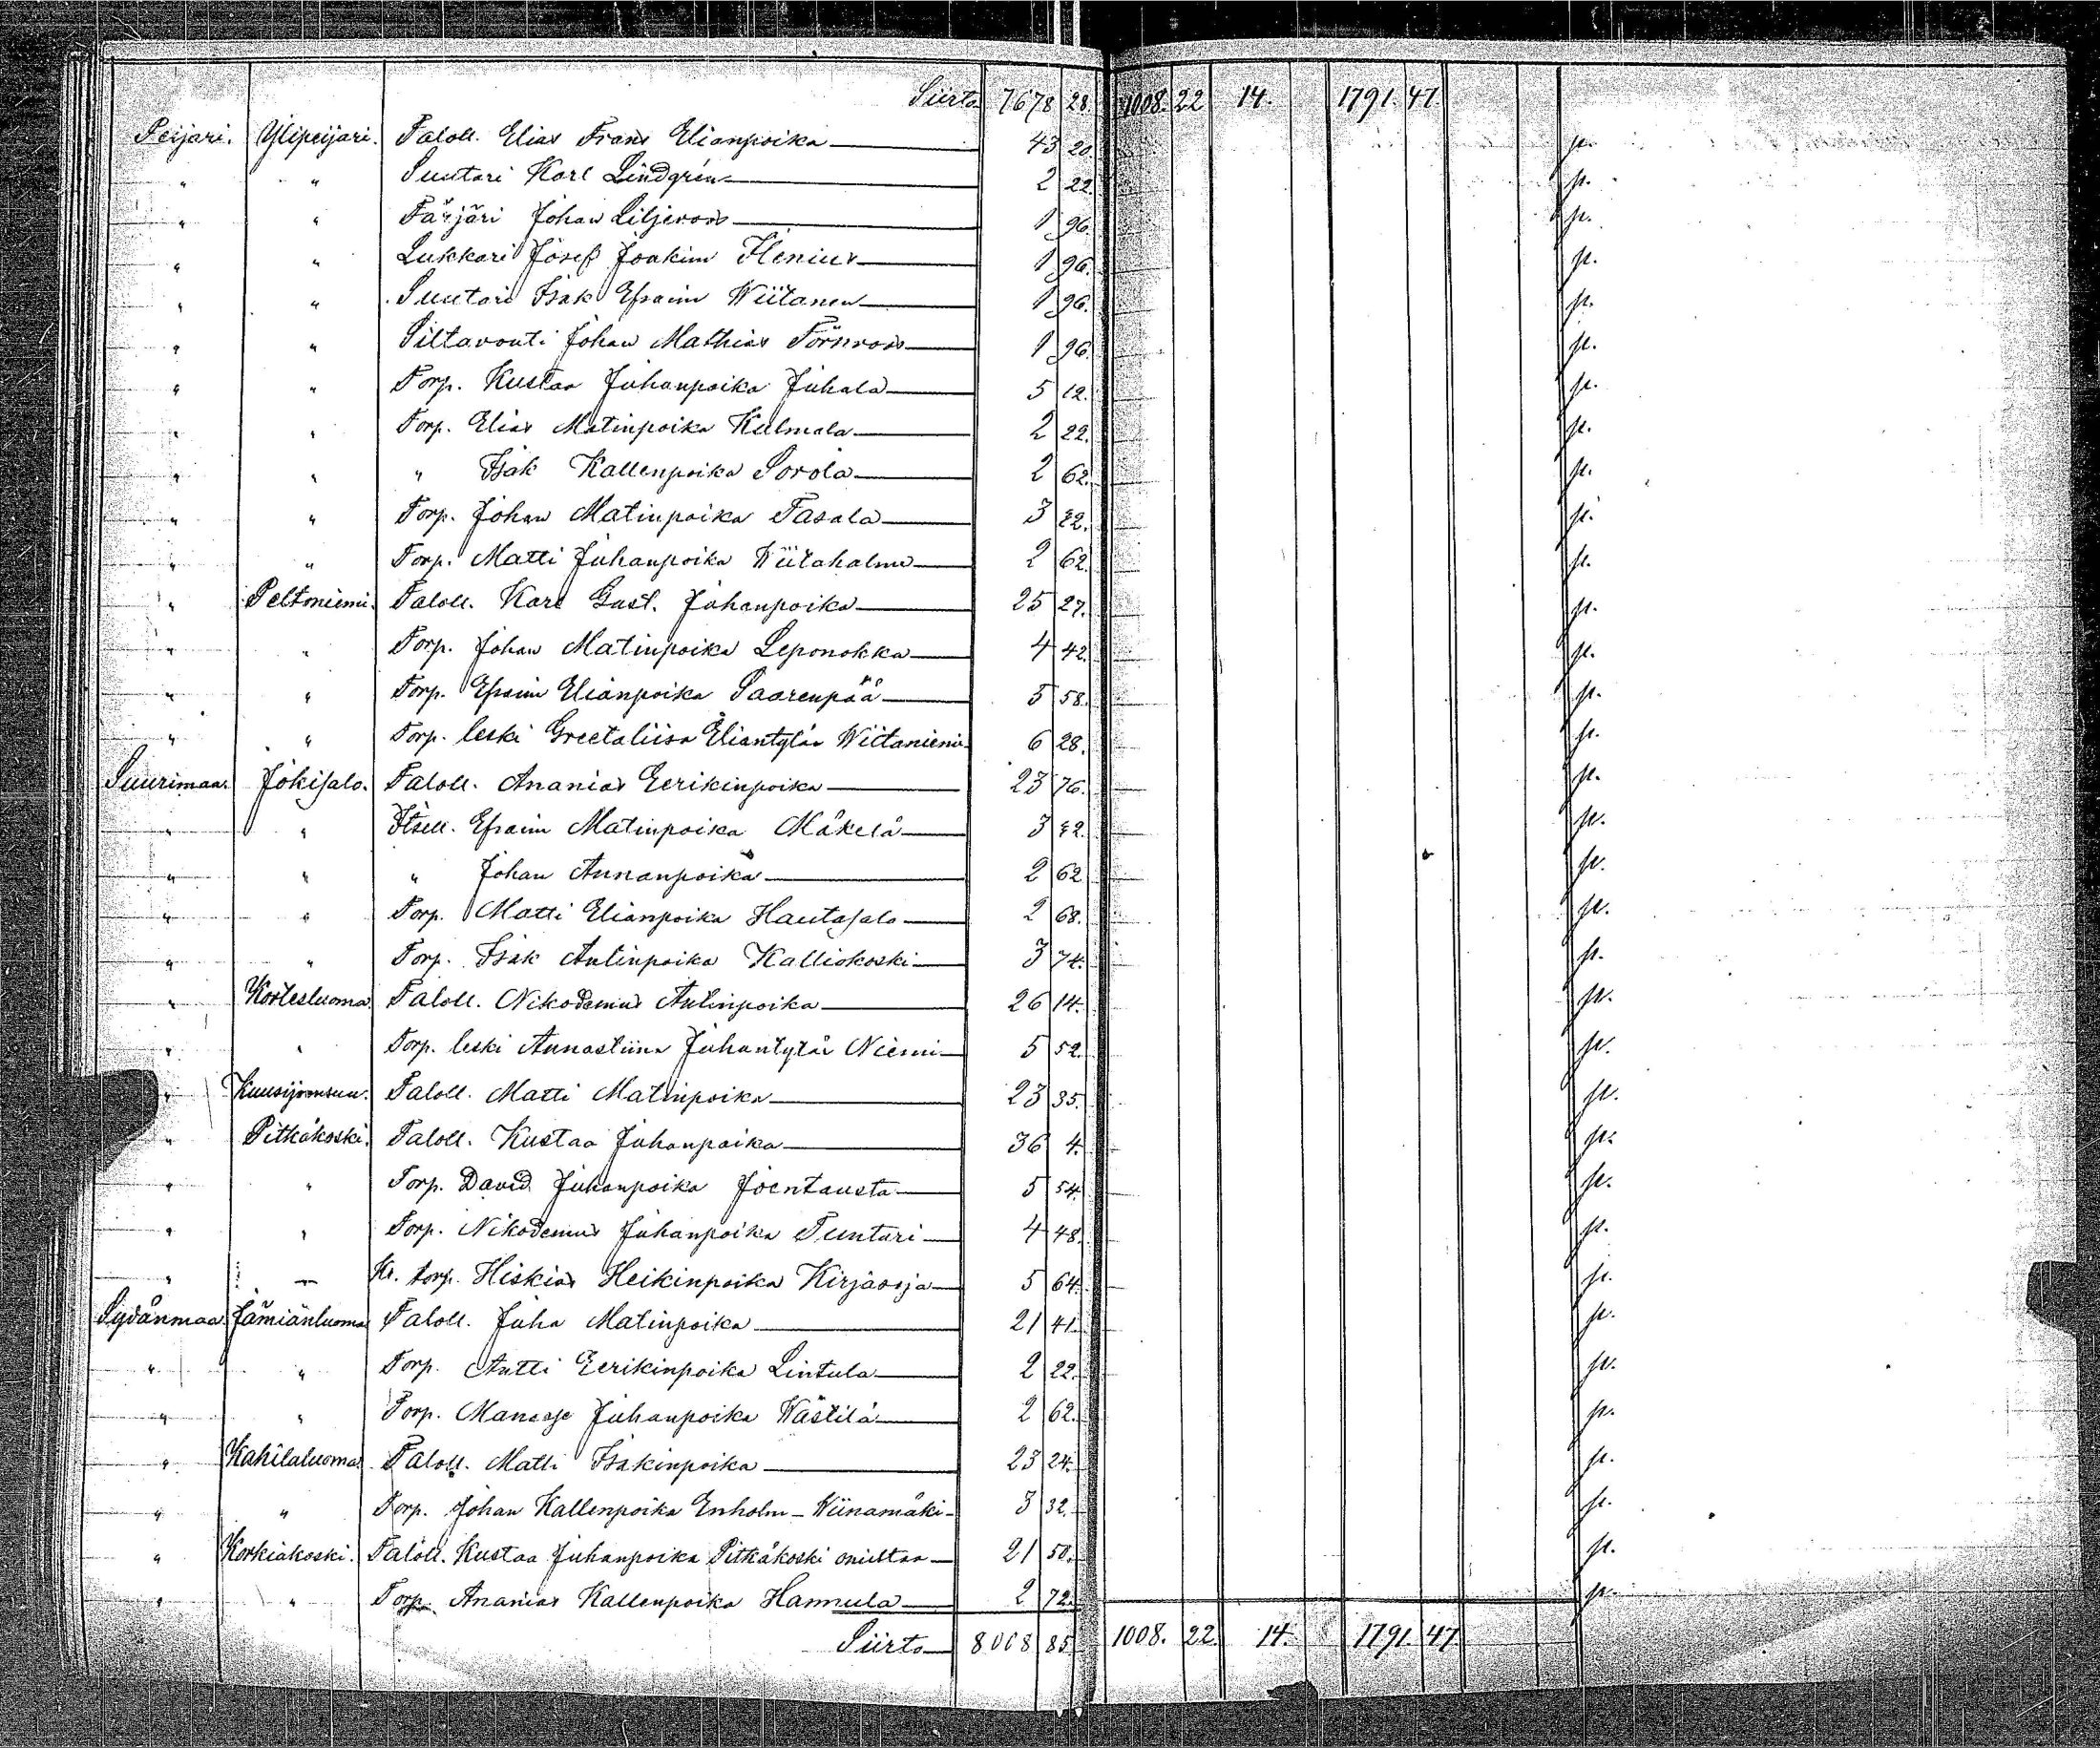 Siirto 7678 28. 1008. 22 14. 1791. 47.
Peijari. Ylipeijari. Taloll. Elias Frans Elianpoika 43 20. p.
" " Suutari Karl Lindgrén 2 22. p.
" " Färjäri Johan Liljeroos 1 96. p.
" " Lukkari Josef Joakim Ilenius 1 96. p.
" " Suutari Isak Efraim Wiitanen 1 96. p.
" " Siltavouti Johan Mathias Törnroos 1 96. p.
" " Torp. Kustaa Juhanpoika Juhala 5 12. p.
" " Torp. Elias Matinpoika Kulmala 2 22. p.
" " " Isak Kallenpoika Sorola 2 62. p.
" " Torp. Johan Matinpoika Tasala 3 22. p.
" " Torp. Matti Juhanpoika Wiitaholma 2 62. p.
" Peltoniemi. Taloll. Karl Gust. Juhanpoika 25 27. p.
" " Torp. Johan Matinpoika Leponokka 4 42. p.
" " Torp. Efraim Elianpoika Saarenpää 5 58. p.
" " Torp. leski Greetaliisa Eliantytär Wiitaniemi 6 28. p.
Suurimaa. Jokisalo. Taloll. Ananias Eerikinpoika 23 76. p.
" " Itsell. Efraim Matinpoika Mäkelä 3 22. p.
" " " Johan Annanpoika 2 62. p.
" " Torp. Matti Elianpoika Hautasalo 2 68. p.
" " Torp. Isak Antinpoika Kalliokoski 3 74. p.
" Kortesluoma Taloll. Nikodemus Antinpoika 26 14. p.
" " Torp. leski Annastiina Juhantytär Niemi 5 52. p.
" Kuusijoensuu. Taloll. Matti Matinpoika 23 35. p.
" Pitkäkoski. Taloll. Kustaa Juhanpoika 36 4. p.
" " Torp. David Juhanpoika Joentausta 5 54. p.
" " Torp. Nikodemus Juhanpoika Tuntari 4 48. p.
" — Kr. torp. Hiskias Heikinpoika Kirjasoja 5 64. p.
Sydänmaa Jämiänluoma Taloll. Juha Matinpoika 21 41. p.
" " Torp. Antti Eerikinpoika Lintula 2 22. p.
" " Torp. Manasse Juhanpoika Wästilä 2 62. p.
" Kahilaluoma. Taloll. Matti Isakinpoika 23 24. p.
" " Torp. Johan Kallenpoika Enholm - Wiinamäki 3 32. p.
" Korkiakoski. Taloll. Kustaa Juhanpoika Pitkäkoski omistaa 21 50. p.
" " Torp. Ananias Kallenpoika Hannula 2 72. p.
Siirto 8008 85. 1008. 22. 14. 1791. 47